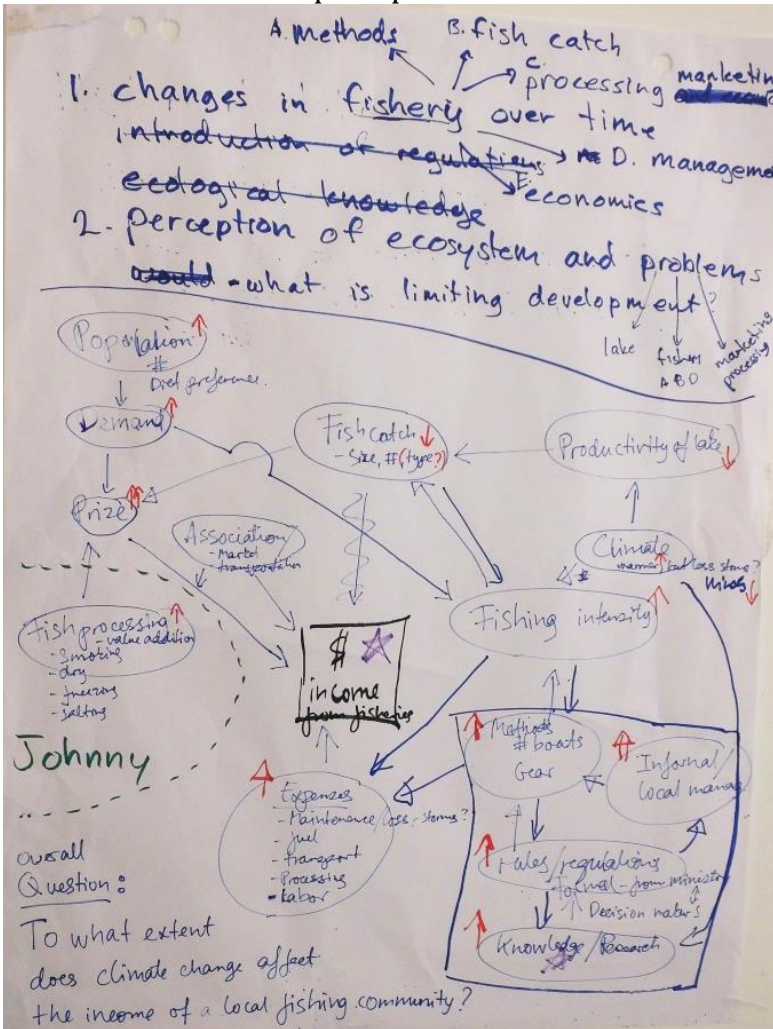 A. methods
B. fish catch
C. processing marketin
1. changes in fishery over time
introduction of regulations
D. manageme
ecological knowledge
E. economics
2. perception of ecosystem and problems
would - what is limiting development?
lake
fishery
A B D
marketing
processing
Population
#
Diet preference
Demand
Prize
Fish catch
- Size, # (type?)
Productivity of lake
Association
- market
- transportation
Climate
warmer, but less storms?
Winds
Fish processing
- value addition
- smoking
- dry
- freezing
- salting
$
income
from fisheries
Fishing intenzity
Johnny
Methods
# boats
Gear
Informal/
Local manag
Expenzes
- Maintenance/loss - storms?
- fuel
- transport
- Processing
- Labor
rules/regulations
- formal - from ministry
Decision makers
Knowledge/Research
overall
Question:
To what extent
does climate change affect
the income of a local fishing community?